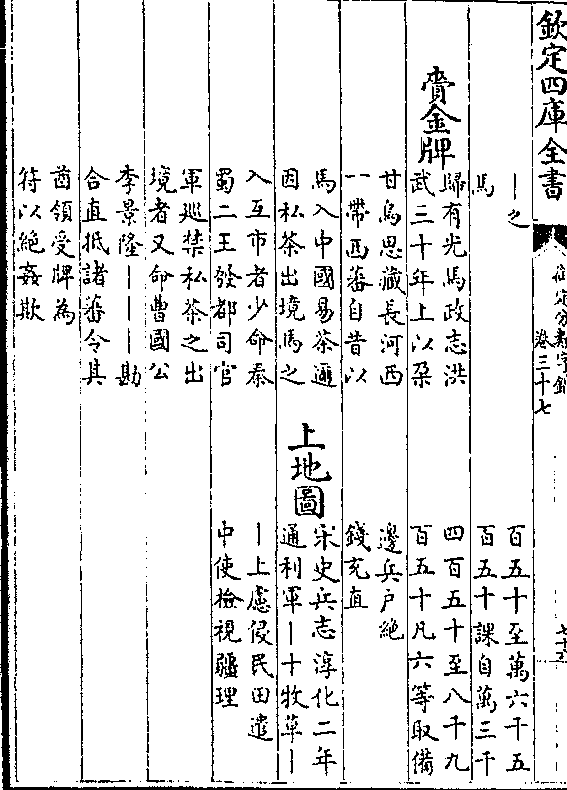 欽定四庫全書
御定分類字錦
卷三十七
｜之
馬
賷金牌
歸有光馬政志洪
武三十年上以朶
甘烏思藏長河西
一帶西蕃自昔以
馬入中國易茶邇
因私茶出境馬之
入互市者少命秦
蜀二王發都司官
軍巡禁私茶之出
境者又命曹國公
李景隆｜｜｜勘
合直抵諸蕃令其
酋領受牌為
符以絶姦欺
百五十至萬六千五
百五十課自萬三千
四百五十至八千九
百五十凡六等取備
邊兵戶絶
錢充直
上地圖
宋史兵志淳化二年
通利軍｜十牧草｜
｜上慮侵民田遣
中使檢視疆理